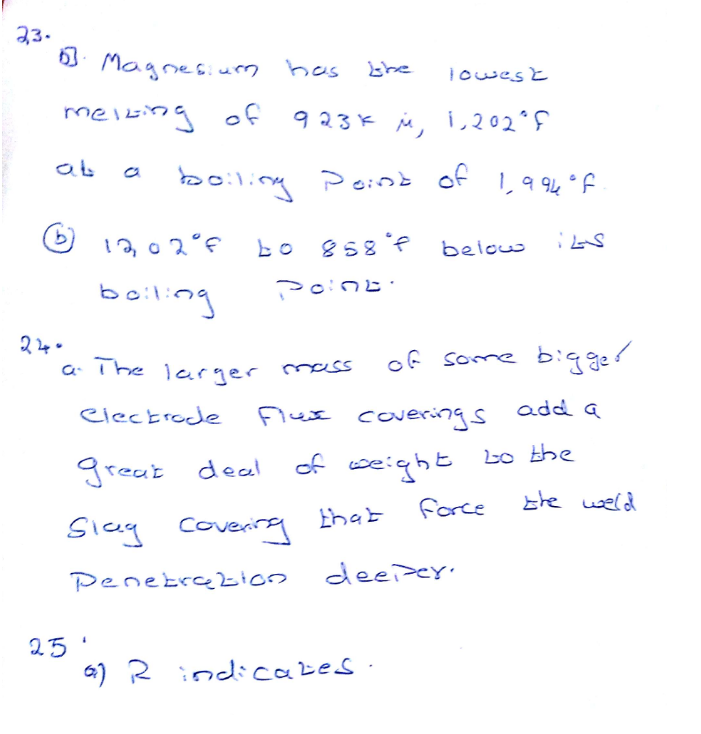 23.
b]. Magnesium has the lowest
melting of 923K is, 1,202°f
at a boiling Point of 1,994°f.
(b) 12,02°f to 858°f below its
boiling Point.
24.
a. The larger mass of some bigger
electrode flux coverings add a
great deal of weight to the
Slag covering that force the weld
Penetration deeper.
25.
a) R indicates.